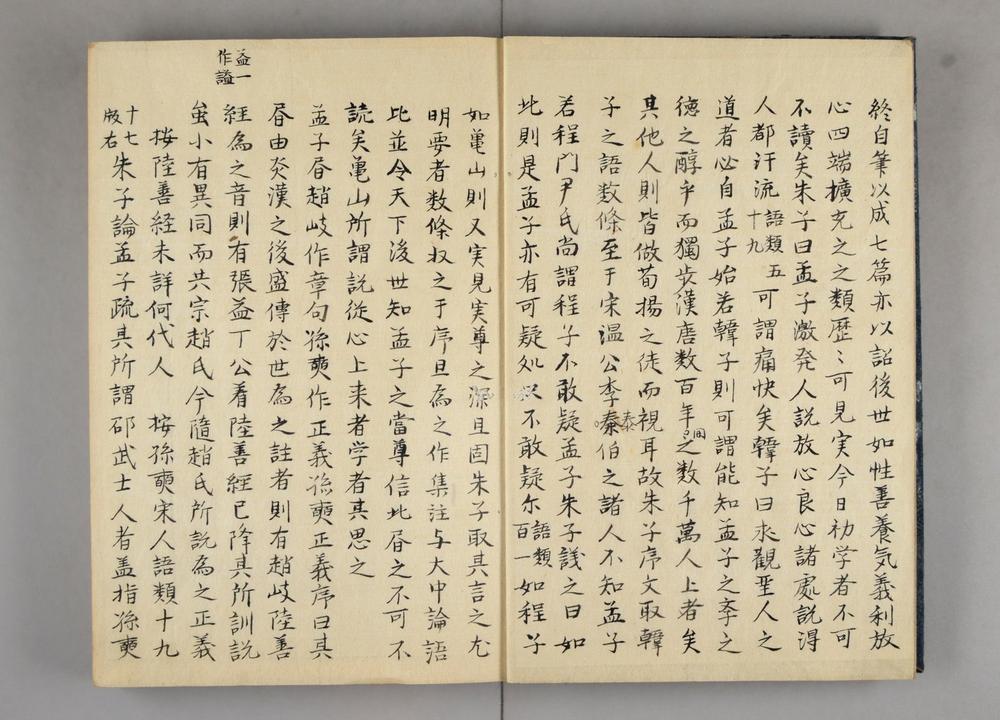 終自筆以成七篇亦以詔後世如性善養気義利放
心四端擴充之之類歴〻可見実今日初学者不可
不讀矣朱子曰孟子激発人説放心良心諸處説淂
人都汗流語類五十九可謂痛快矣韓子曰求觀聖人之
道者必自孟子始若韓子則可謂能知孟子之李之
德之醇乎而獨步漢唐数百年間之数千萬人上者矣
其他人則皆倣荀揚之徒而視耳故朱子序文取韓
子之語数條至于宋温公李泰伯之諸人不知孟子
若程門尹氏尚謂程子不敢疑孟子朱子議之曰如
此則是孟子亦有可疑処只不敢疑尓語類百一如程子
如亀山則又実見実尊之深且固朱子取其言之尤
明要者数條収之于序且為之作集注与大中論語
比並令天下後世知孟子之當尊信此㫺之不可不
読矣亀山所謂説従心上来者学者其思之
孟子㫺趙岐作章句孫奭作正義孫奭正義序曰其
㫺由炎漢之後盛傳於世為之註者則有趙岐陸善
經為之音則有張益丁公着陸善經已降其所訓説
益一作謚
虽小有異同而共宗趙氏今隨趙氏所説為之正義
按陸善経未詳何代人 按孫奭宋人語類十九
十七版右朱子論孟子疏其所謂邵武士人者盖指孫奭